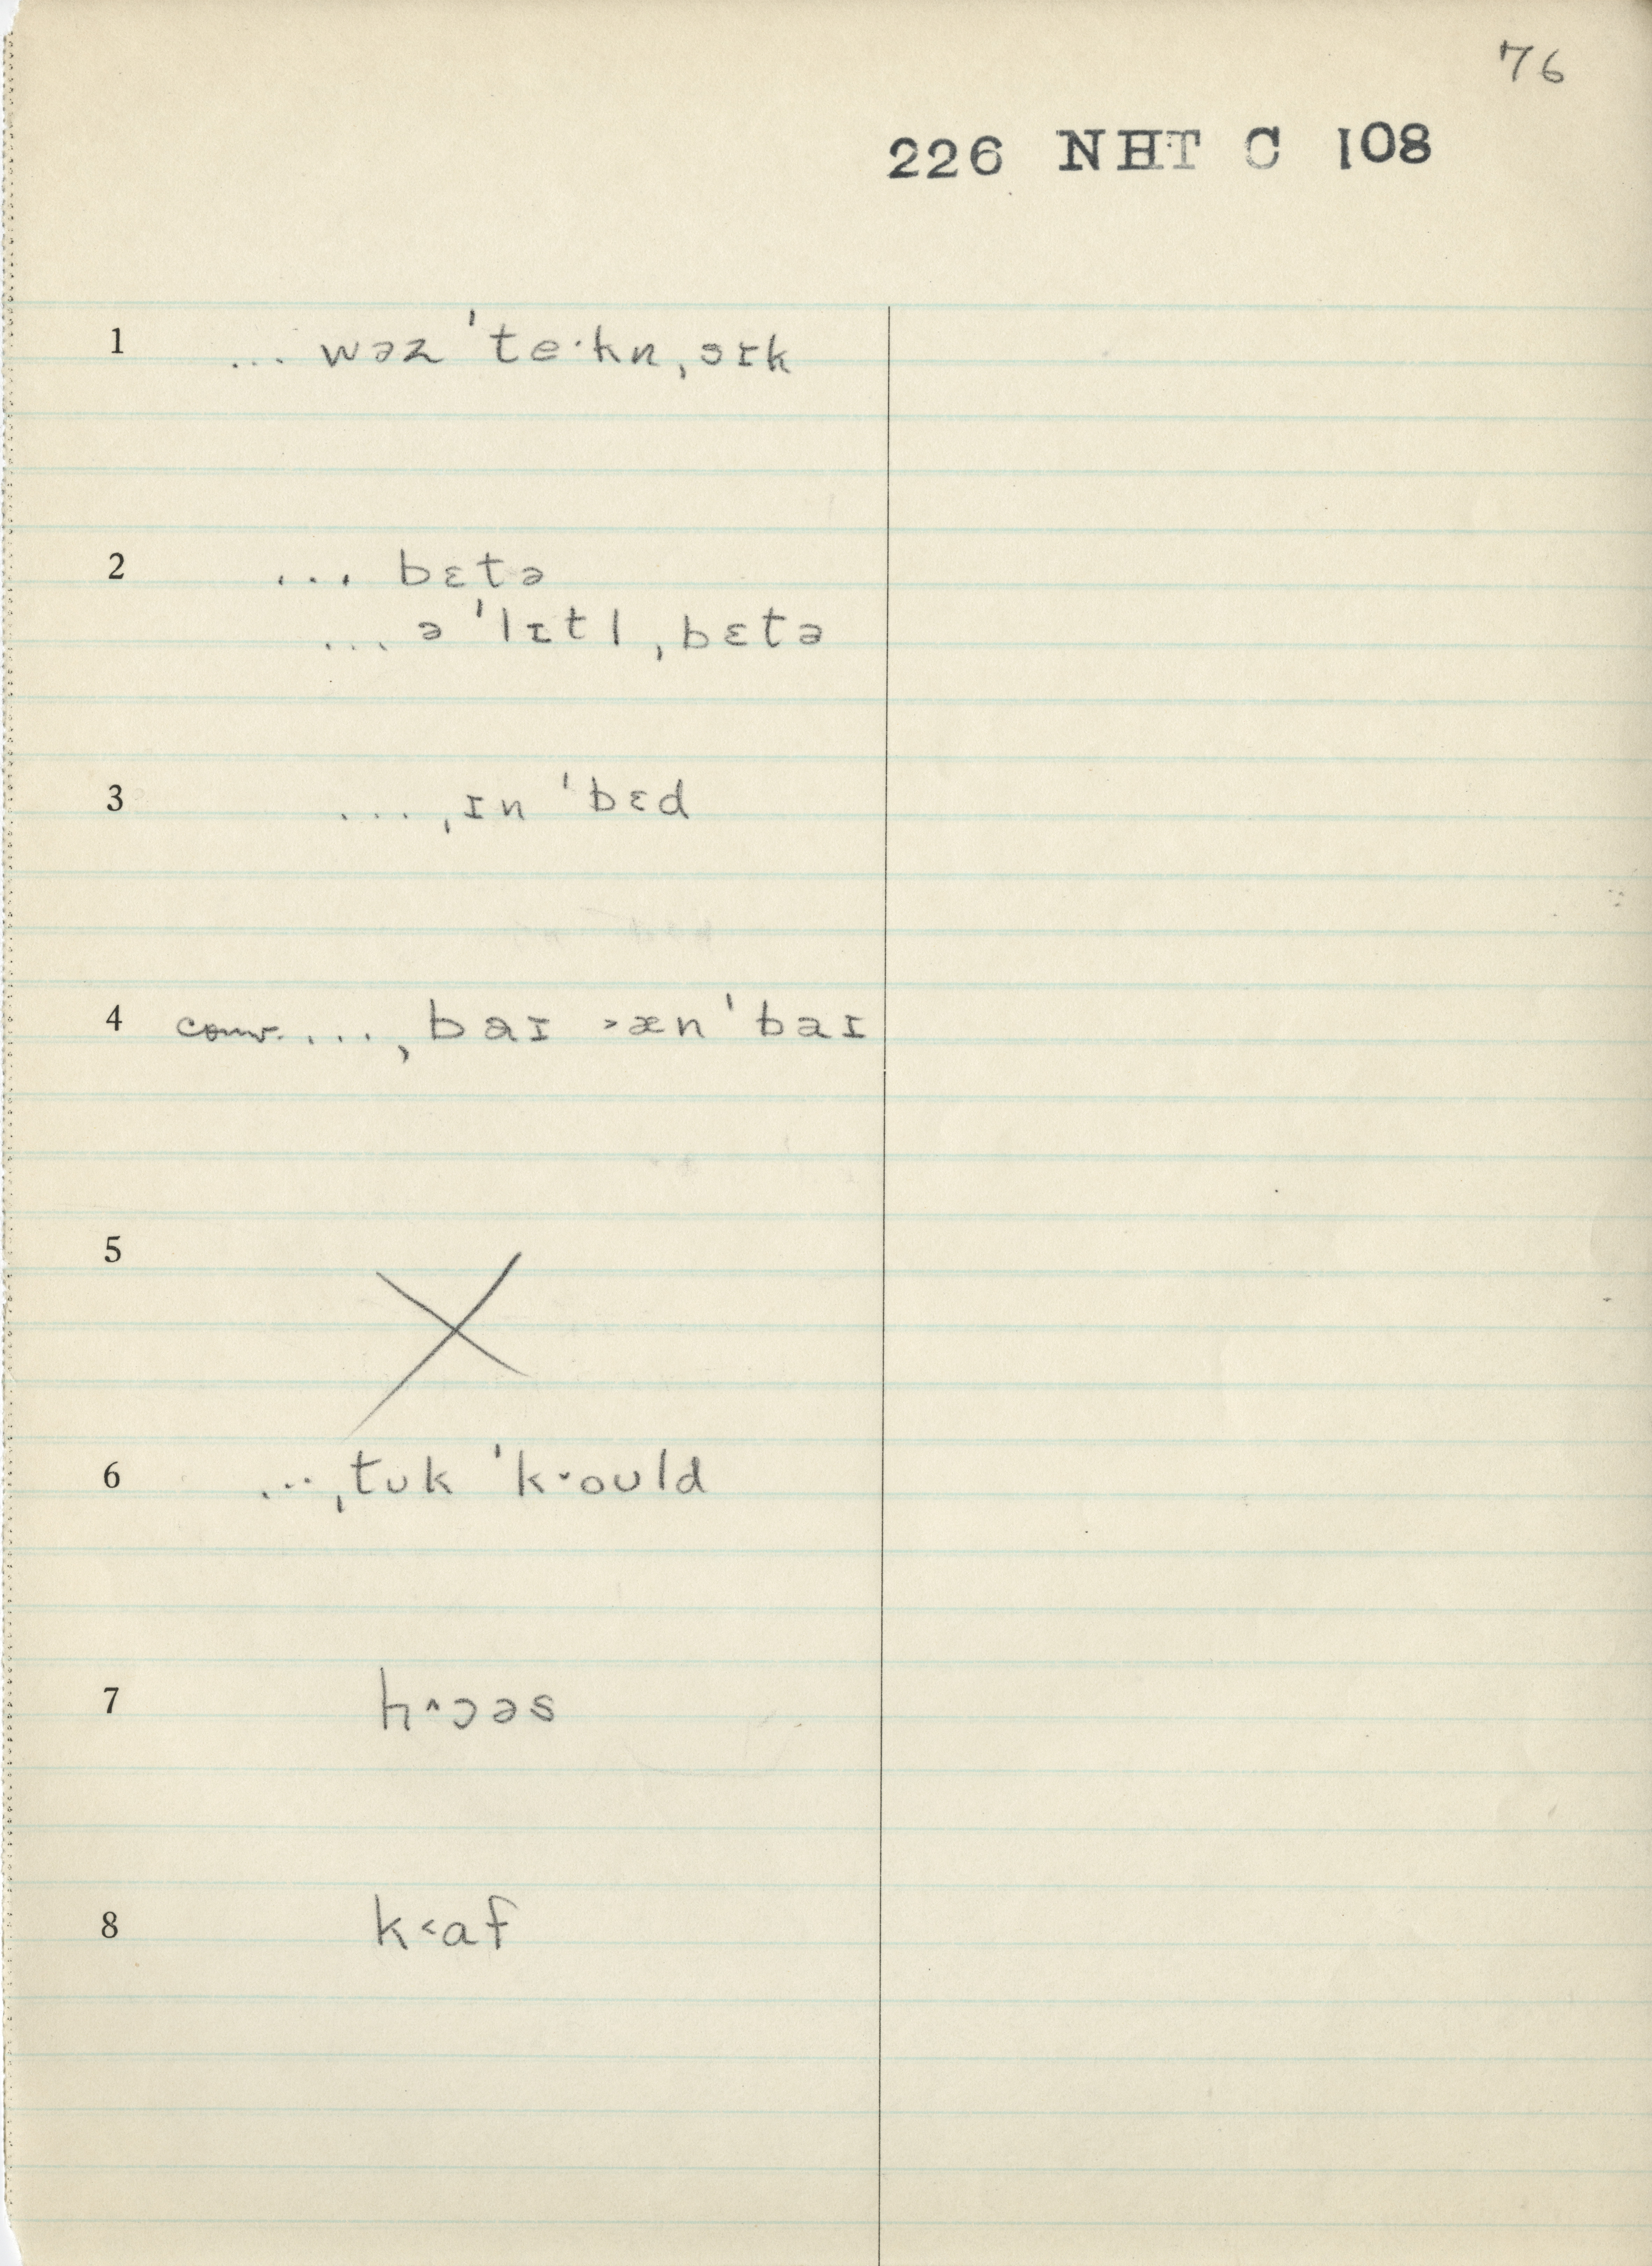 76
226 NHT C 108
1 ... wəz ˈteˑkn ˌsɪk
2 ... bɛtə
... ə ˈlɪtl ˌbɛtə
3 ... ˌɪn ˈbɛd
4 conv. ... ˌbaɪ ˃æn ˈbaɪ
5
6 ... ˌtʊk ˈk˅oʊld
7 h˄ɔəs
8 k˂af